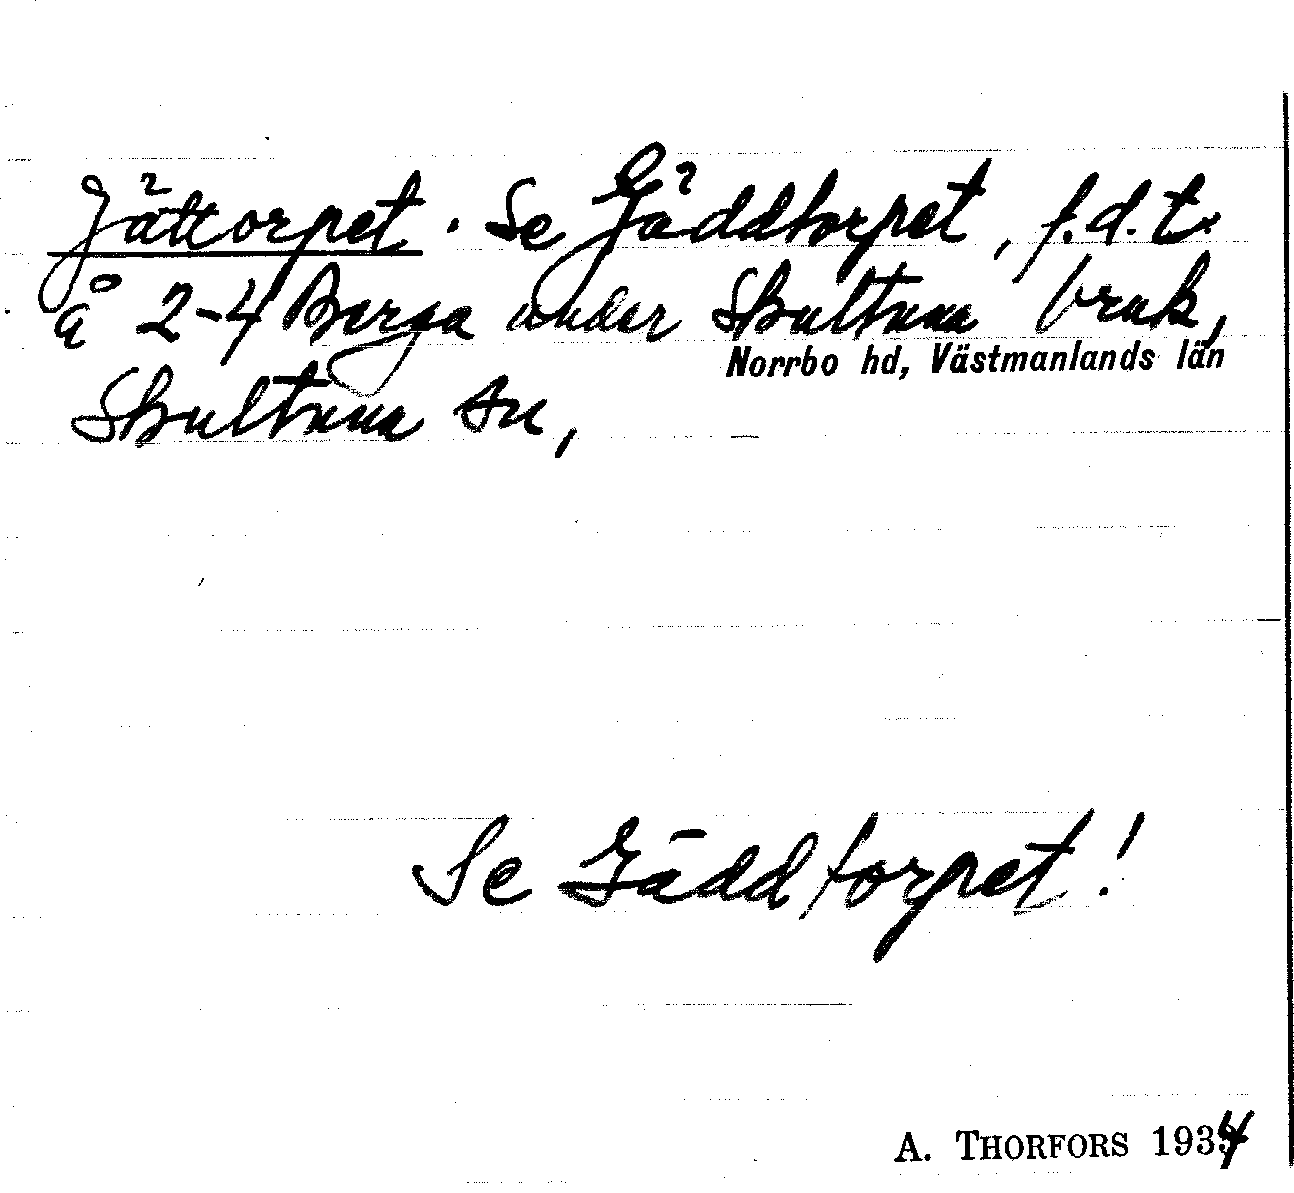 Jättorpet. Se Gäddtorpet, f.d. t.
å 2-4 Berga under Skultuna bruk,
Norrbo hd, Västmanlands län
Skultuna sn,
Se Gäddtorpet!
A. THORFORS 1934